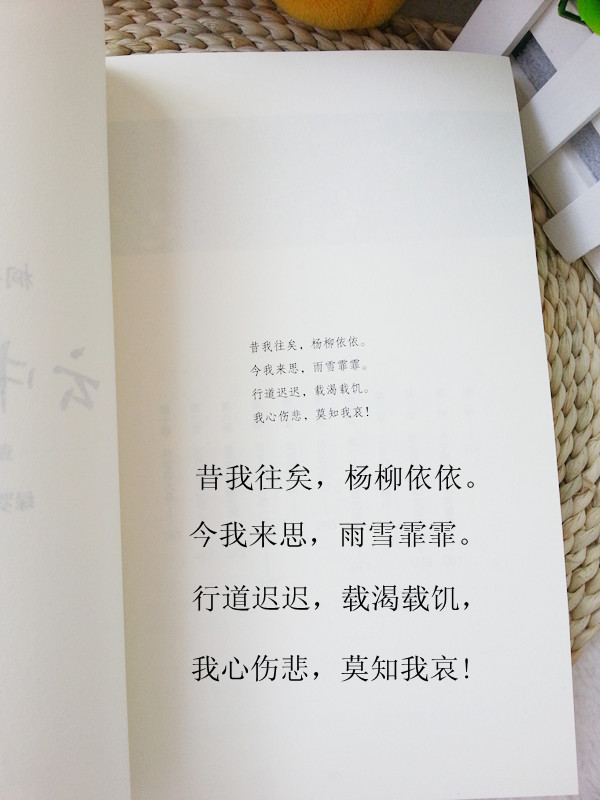 昔我往矣，杨柳依依。
今我来思，雨雪霏霏。
行道迟迟，载渴载饥。
我心伤悲，莫知我哀!
昔我往矣，杨柳依依。
今我来思，雨雪霏霏。
行道迟迟，载渴载饥，
我心伤悲，莫知我哀!